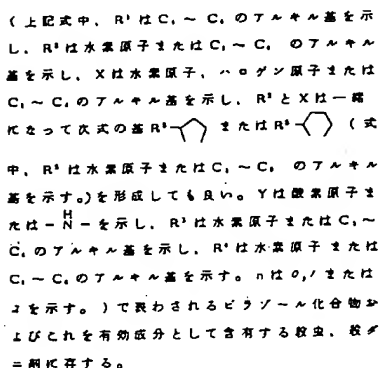 (上記式中、R¹はC₁～C₄のアルキル基を示
し、R²は水素原子またはC₁～C₄ のアルキル
基を示し、Xは水素原子、ハロゲン原子または
C₁～C₄のアルキル基を示し、R²とXは一緒
になって次式の基R⁵ または R⁵ (式
中、R⁵は水素原子またはC₁～C₄ のアルキル
基を示す。)を形成しても良い。Yは酸素原子ま
たは－NH－を示し、R³は水素原子またはC₁～
C₄のアルキル基を示し、R⁴は水素原子または
C₁～C₄のアルキル基を示す。nは0,1または
2を示す。)で表わされるピラゾール化合物お
よびこれを有効成分として含有する殺虫、殺ダ
ニ剤に存する。